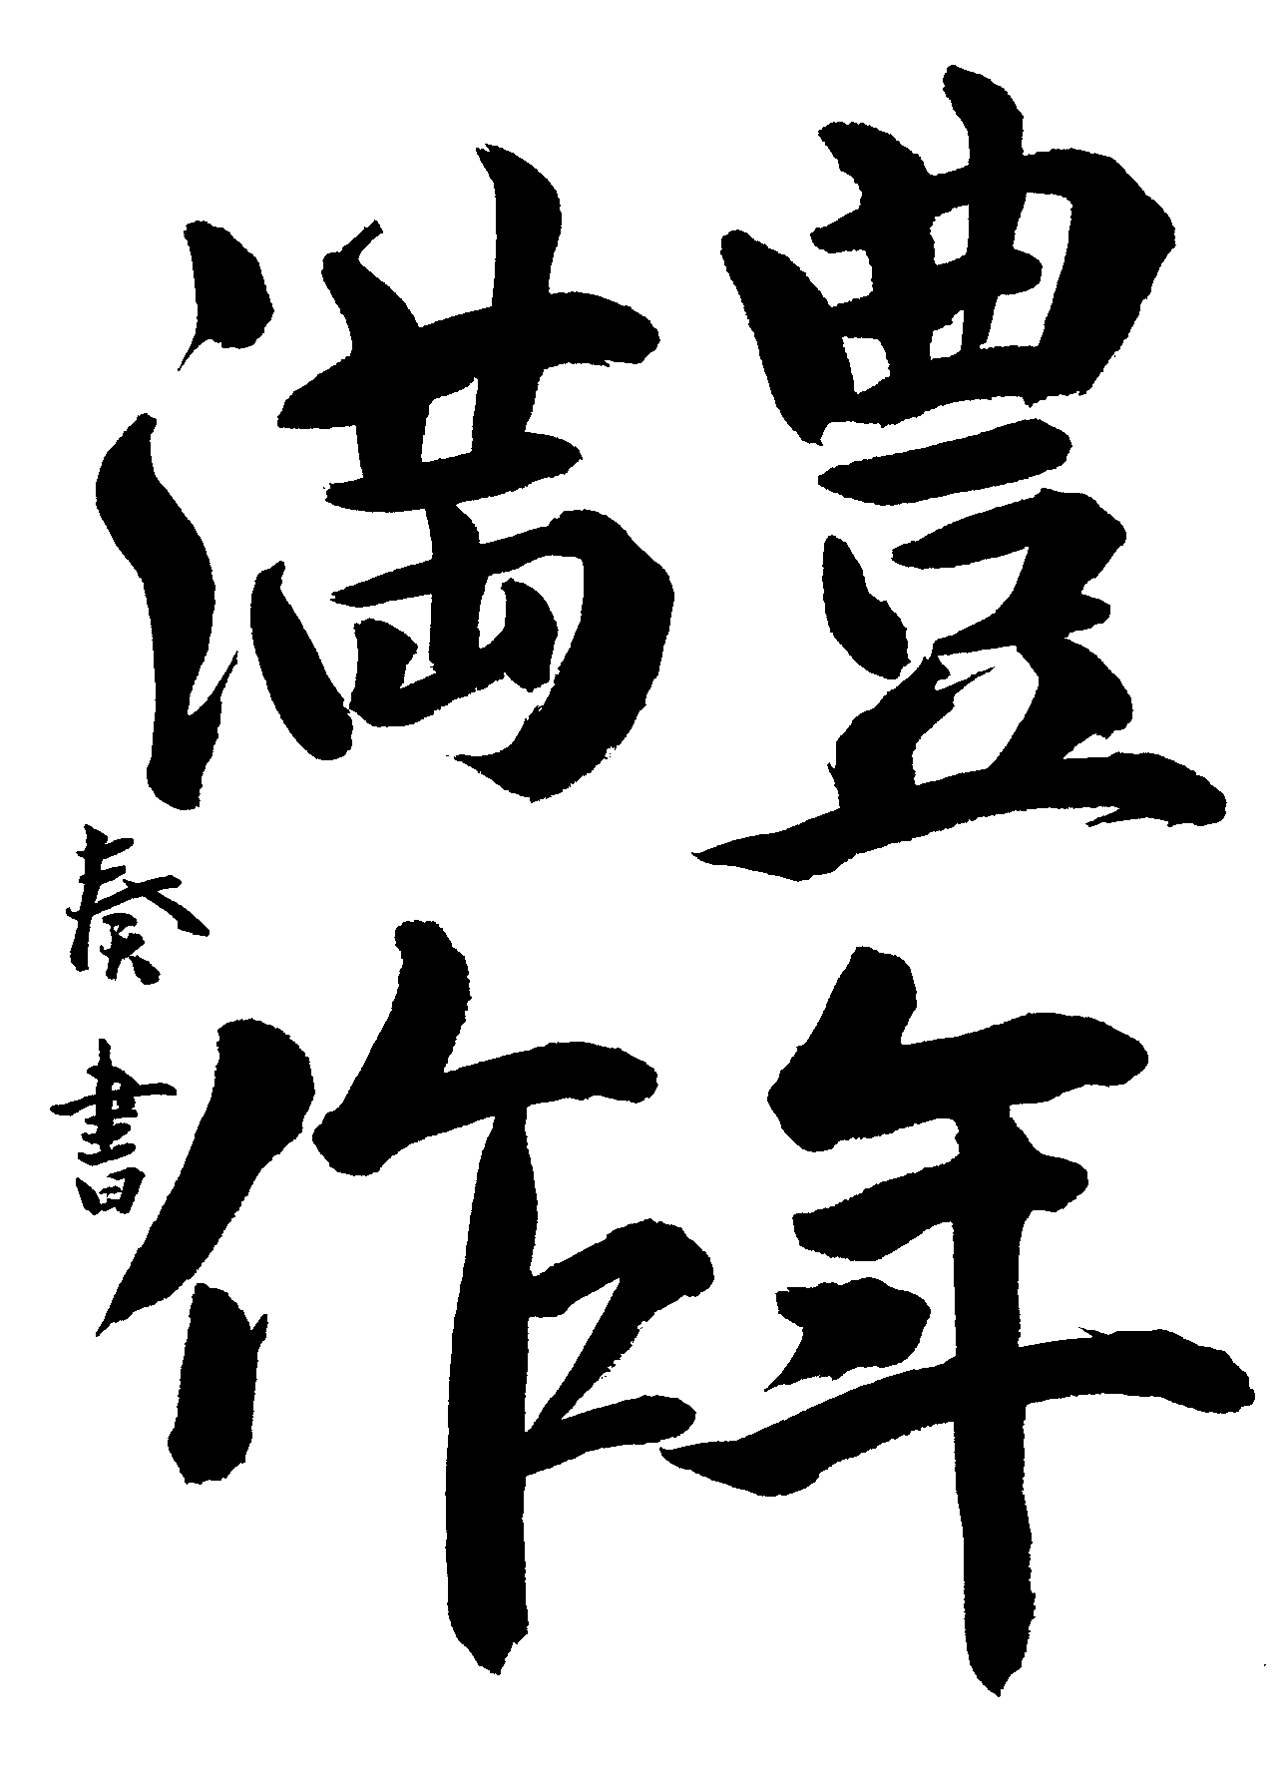 豊年
満作
奏書